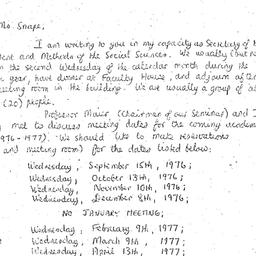 Ms. Snape,
I am writing to you in my capacity as Secretary of
ent and Methods of the Social Sciences. We usually
the second Wednesday of the calendar month during the
year, have dinner at Faculty House, and adjourn at
meeting room in the building. We are usually a group of
(20) people.
Professor Maier (Chairman of our Seminar) and I
met to discuss meeting dates for the coming academ
976-1977). We should like to make reservations
and meeting room) for the dates listed below:
Wednesday, September 15th, 1976;
Wednesday, October 13th, 1976;
Wednesday, November 10th, 1976;
Wednesday, December 8th, 1976;
NO JANUARY MEETING;
Wednesday, February 9th, 1977;
Wednesday, March 9th, 1977;
Wednesday, April 13th 1977